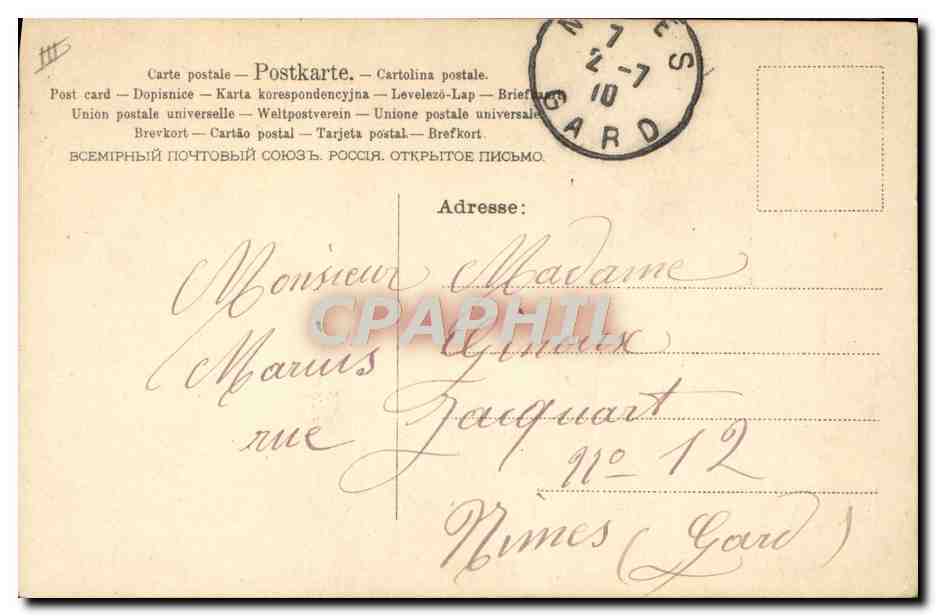 III
Carte postale — Postkarte. — Cartolina postale.
Post card — Dopisnice — Karta korespondencyjna — Levelező-Lap — Briefkaart
Union postale universelle — Weltpostverein — Unione postale universale
Brevkort — Cartão postal — Tarjeta postal — Brefkort.
ВСЕМІРНЫЙ ПОЧТОВЫЙ СОЮЗЪ. РОССІЯ. ОТКРЫТОЕ ПИСЬМО.
NIMES
7
2 -7
10
GARD
Adresse:
Monsieur Madame
CPAPHIL
Marius Ginoux
rue Jacquart
No 12
Nimes (Gard)